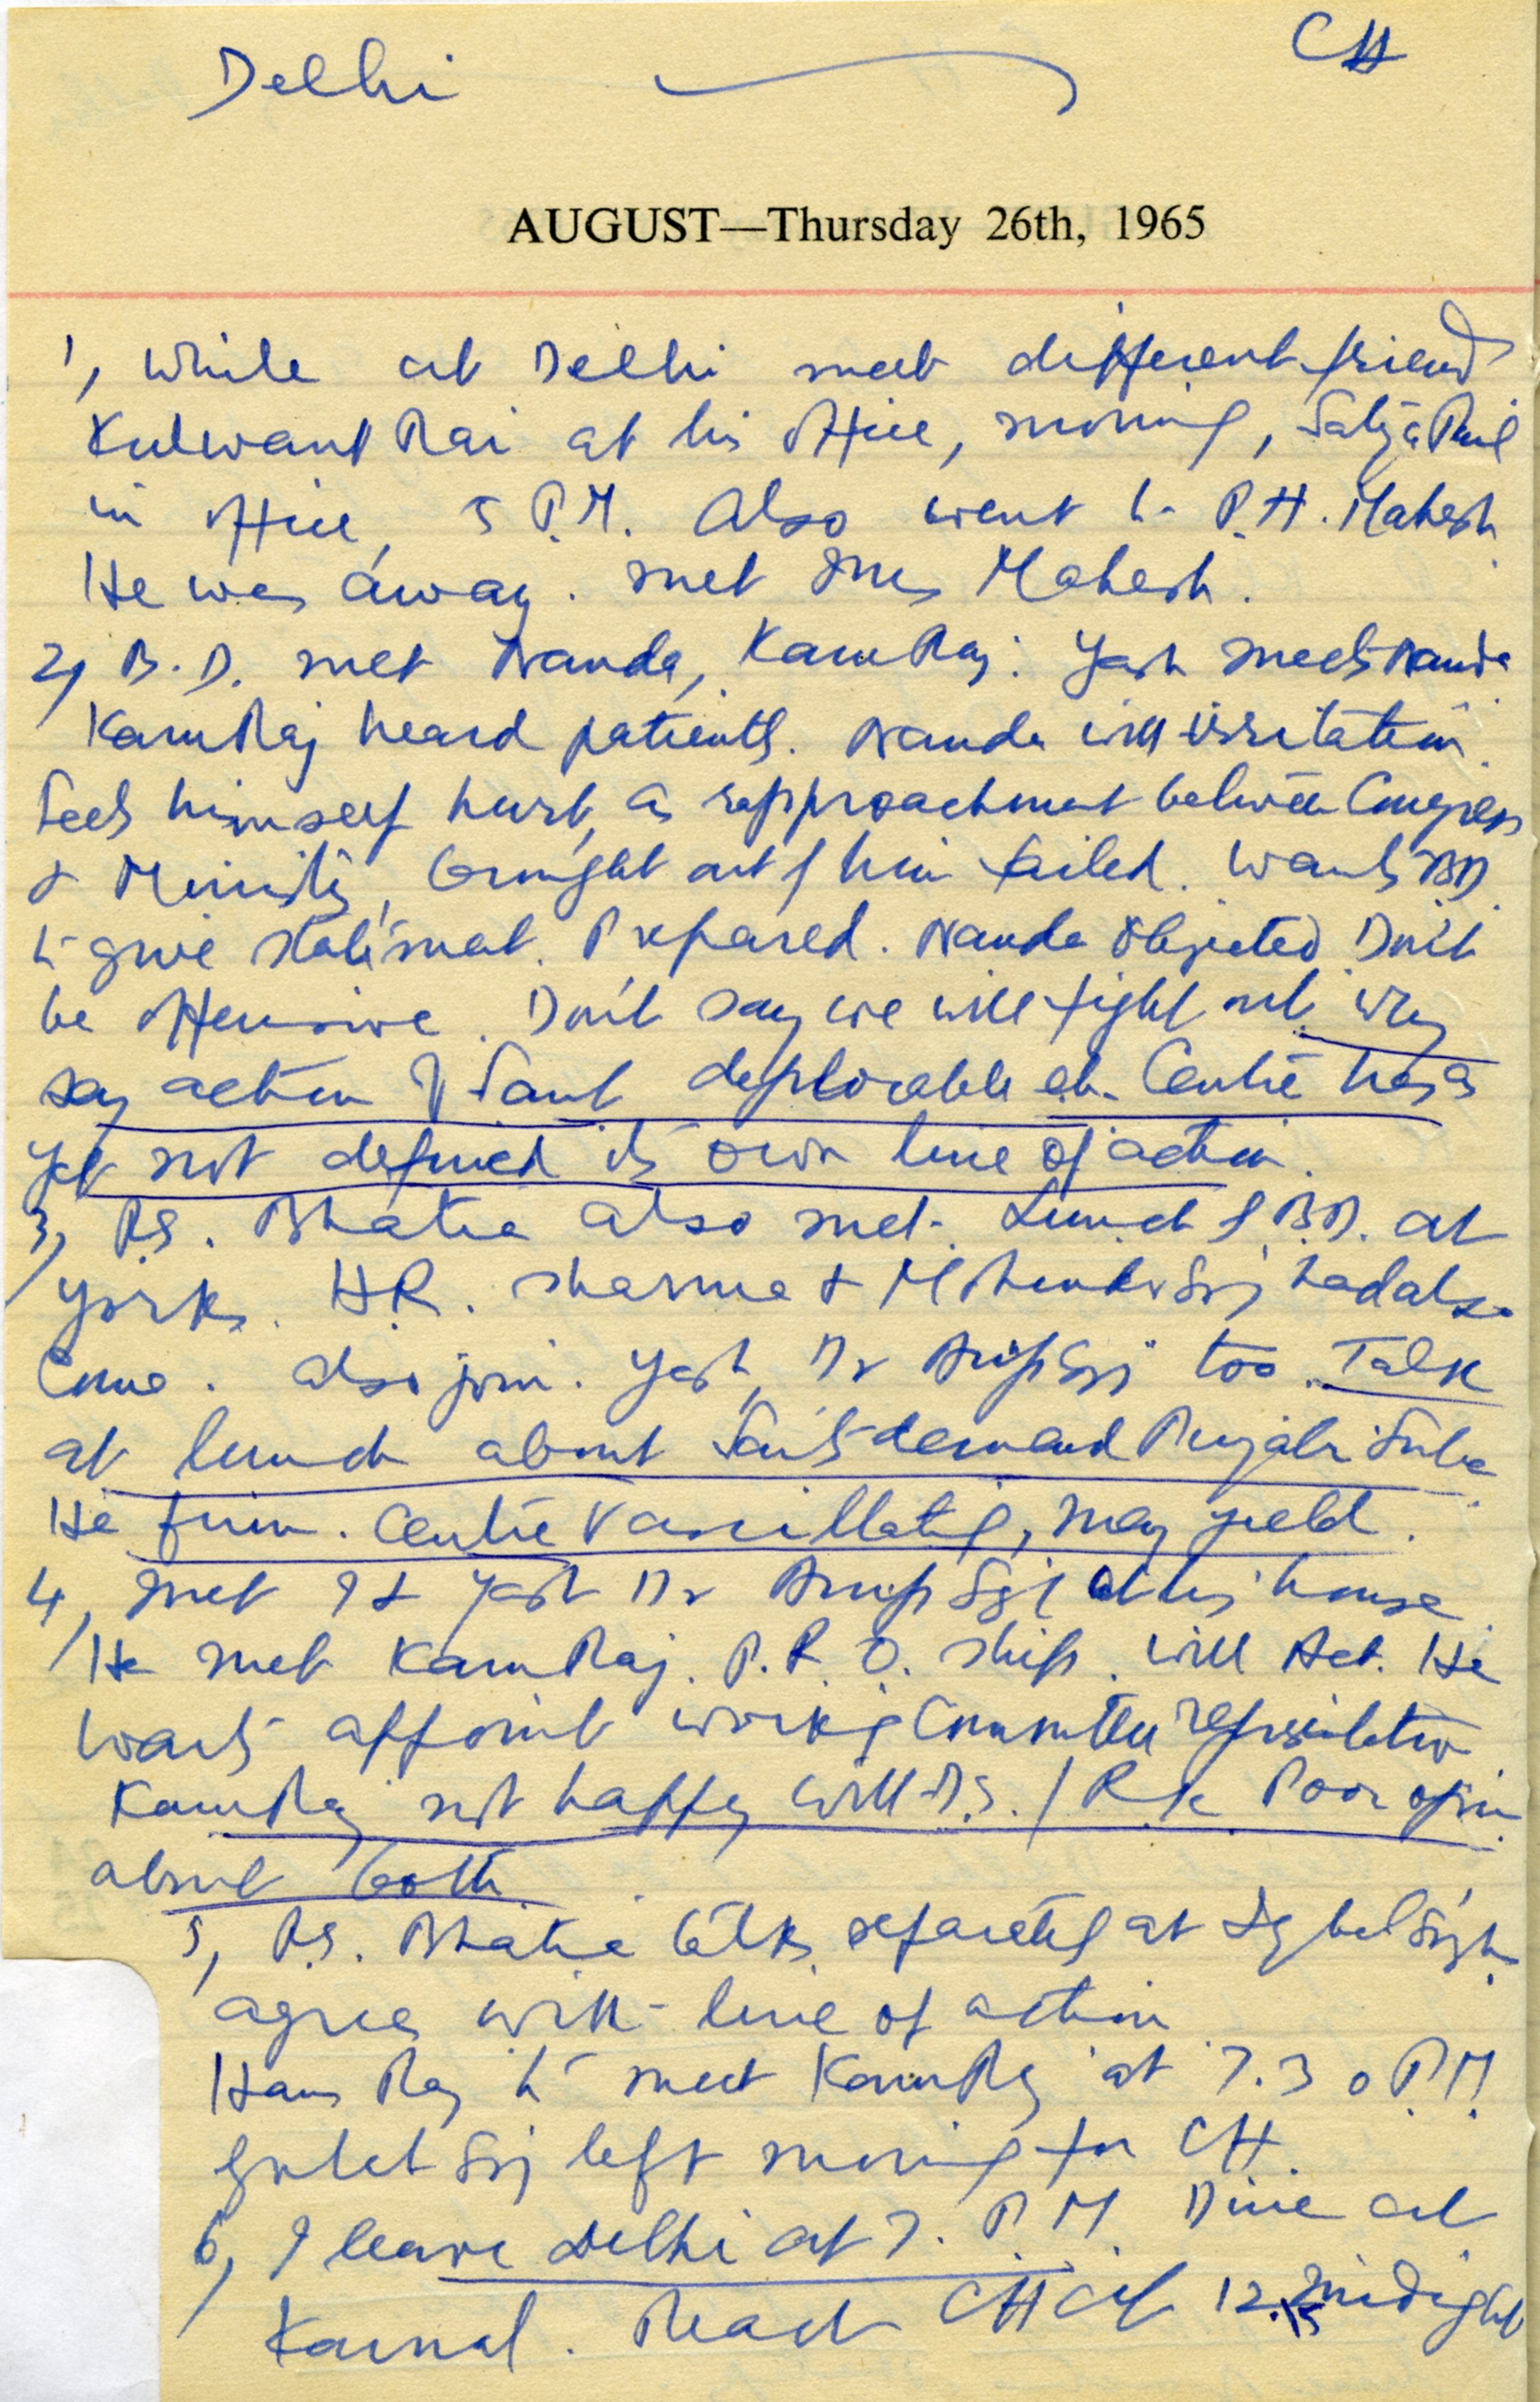 Delhi CH
AUGUST—Thursday 26th, 1965
1, While at Delhi meet different friends
Kulwant Rai at his office, morning, Satya Paul
in office, 5 P.M. Also went to P.H. Mahesh
He was away. met Mrs Mahesh.
2, B.D. met Nanda, KamRaj. Yash meets Nanda
KamRaj heard patiently. Nanda with irritation.
Feels himself hurt, as rapproachment between Congress
& Ministry, brought out of him failed. Wants BD.
to give statement. Prepared. Nanda objected Don't
be offensive. Don't say we will fight out. Why
say action of Sant deplorable etc. Centre has as
yet not defined its own line of action.
3, R.S. Bhatia also met. Lunch of B.D. at
Yorks. H.R. Sharma & Mohinder Sgj had also
come. also join. Yash, Dr Anup Sgj too. Talk
at lunch about Sant's demand Punjabi Suba
He firm. Centre Vascillating, may yield.
4, Met I & Yash Dr Anup Sgj at his house.
He met KamRaj. P.R.O. ship. Will Act. He
wants appoint working Committee representative
KamRaj not happy with D.S. / R.K. Poor opinion
about both.
5, R.S. Bhatia talks separately at Iqbal Singh
agrees with line of action
Hans Raj to meet KamRaj at 7.30 P.M.
Sgj left morning for CH.
6, I leave Delhi at 7. P.M. Dine at
Karnal. Reach CH at 12.15 midnight